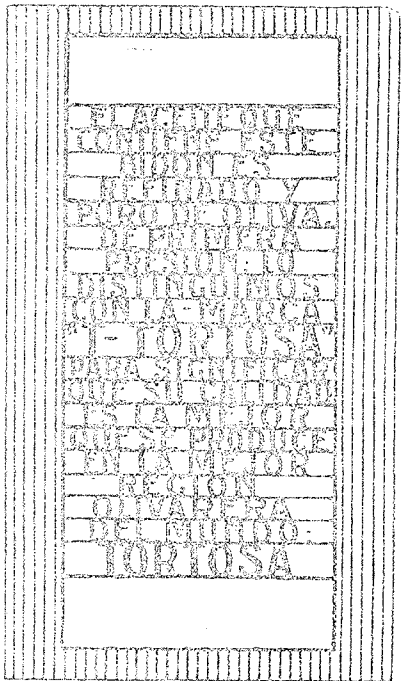 EL ACEITE QUE
CONTIENE ESTE
BIDON ES
REFINADO Y
PURO DE OLIVA,
DE PRIMERA
PRESION: LO
DISTINGUIMOS
CON LA MARCA
"1-TORTOSA"
PARA SIGNIFICAR
QUE SU CALIDAD
ES LA MEJOR
QUE SE PRODUCE
EN LA MEJOR
REGION
OLIVARERA
DEL MUNDO:
TORTOSA